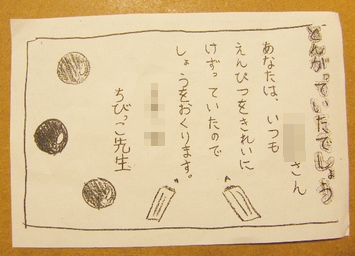 とんがっていたでしょう
さん
あなたは、いつも
えんぴつをきれいに
けずっていたので
しょうをおくります。
ちびっこ先生